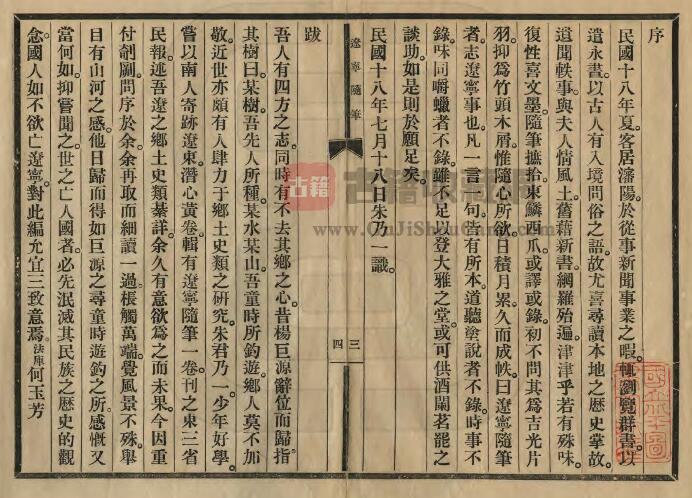 序
民國十八年夏。客居瀋陽。於從事新聞事業之暇。輒瀏覽羣書。以
遣永晝。以古人有入境問俗之語。故尤喜尋讀本地之歷史掌故。
遺聞軼事。與夫人情風土。舊藉新書。網羅殆遍。津津乎若有殊味。
復性喜文墨隨筆摭拾。東鱗西爪。或譯或錄。初不問其爲吉光片
羽。抑爲竹頭木屑。惟隨心所欲。日積月累。久而成帙。曰遼寧隨筆
者。志遼寧事也。凡一言一句。皆有所本。道聽塗說者不錄。時事不
錄。味同嚼蠟者不錄。雖不足以登大雅之堂。或可供酒闌茗罷之
談助。如是則於願足矣。
民國十八年七月十八日朱乃一識。
遼寧隨筆
三
四
跋
吾人有四方之志。同時有不去其鄉之心。昔楊巨源辭位而歸。指
其樹曰。某樹。吾先人所種。某水某山。吾童時所釣遊。鄉人莫不加
敬。近世亦頗有人肆力于鄉土史類之研究。朱君乃一。少年好學。
嘗以南人寄跡遼東。潛心黃卷。輯有遼寧隨筆一卷。刊之東三省
民報。述吾遼之鄉土史類綦詳。余久有意欲爲之而未果。今因重
付剞劂。問序於余。余再取而細讀一過。棖觸萬端。覺風景不殊。舉
目有山河之感。他日歸而得如巨源之尋童時遊釣之所。感慨又
當何如。抑嘗聞之。世之亡人國者。必先泯滅其民族之歷史的觀
念。國人如不欲亡遼寧。對此編尤宜三致意焉。法庫何玉芳
古籍
GuJiShuCang.com